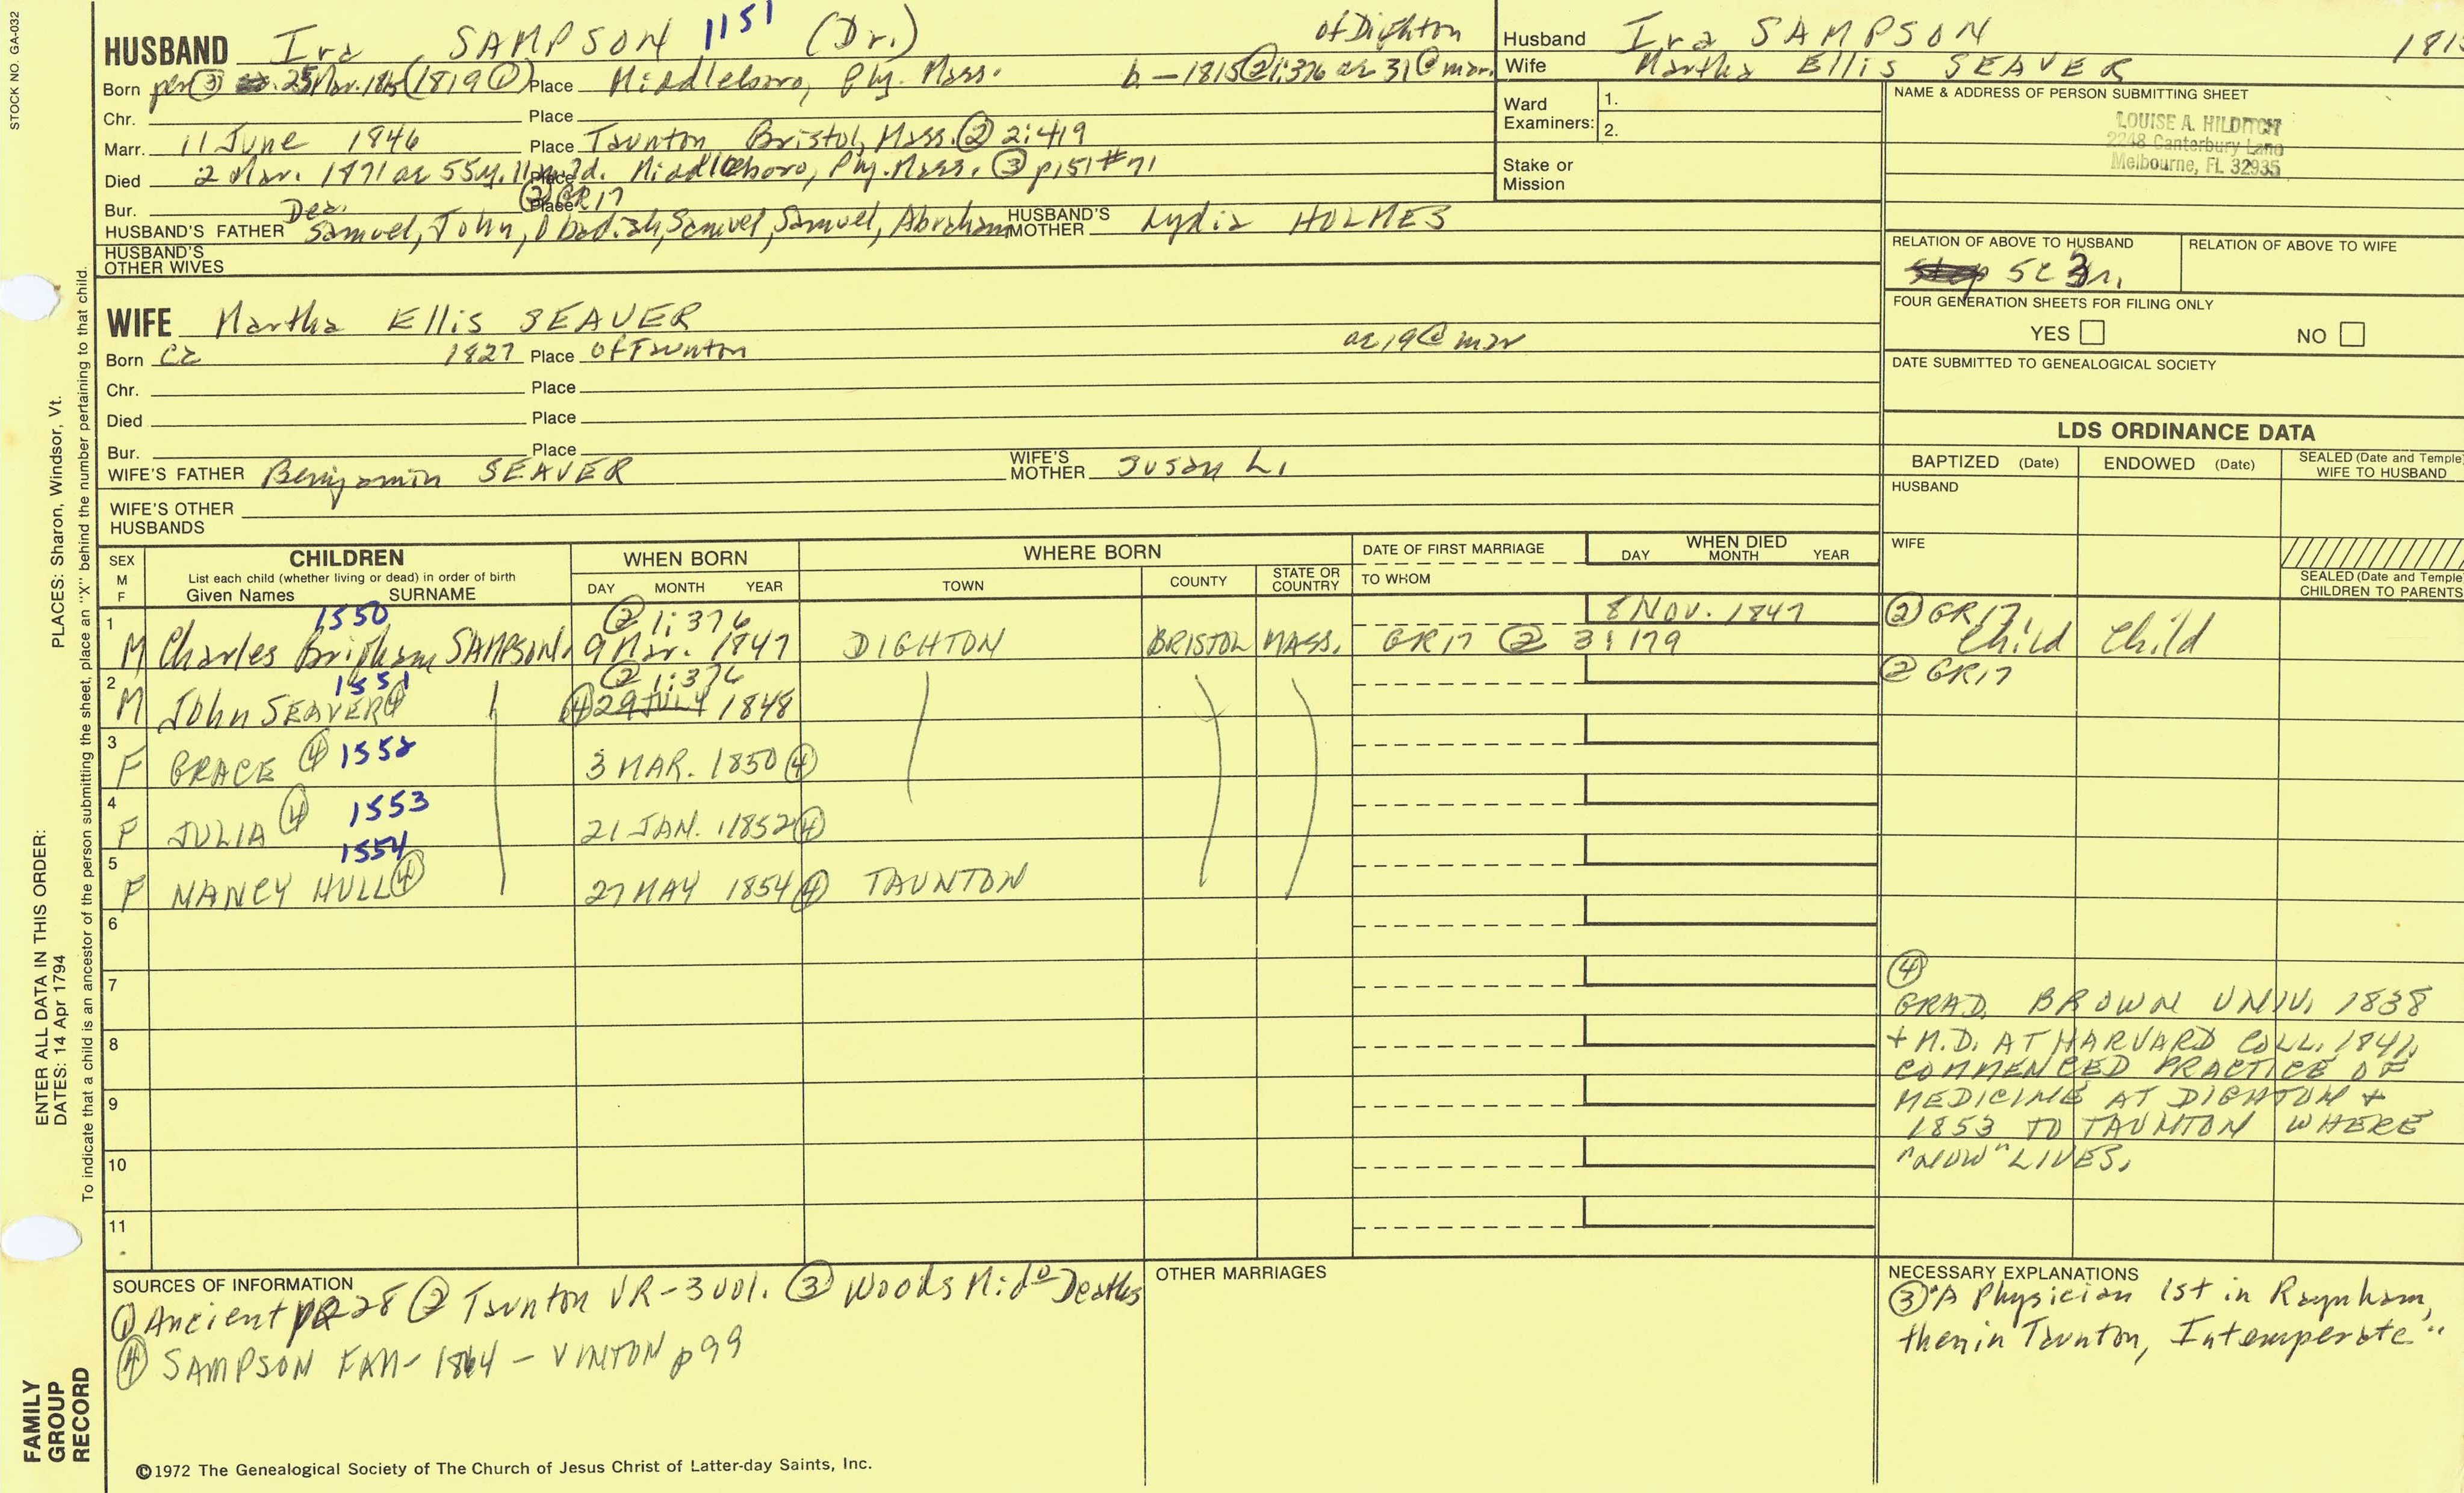 STOCK NO. GA-032
HUSBAND Ira SAMPSON 1151 (Dr.) of Dighton
Born per ③ 25 Mar. 1815 (1819 ①) Place Middleboro, Ply. Mass. b - 1815 ② 1:376 ae 31 @ mar.
Chr. Place
Marr. 11 June 1846 Place Taunton Bristol, Mass. ② 2:419
Died 2 Mar. 1871 ae 55y. 11m. 7d. Place Middleboro, Ply. Mass. ③ p151 #71
Bur. Place ② GR17
HUSBAND'S FATHER Dea. Samuel, John, Obadiah, Samuel, Samuel, Abraham HUSBAND'S MOTHER Lydia HOLMES
HUSBAND'S OTHER WIVES
WIFE Martha Ellis SEAVER
Born ca 1827 Place of Taunton ae 19 @ mar
Chr. Place
Died Place
Bur. Place
WIFE'S FATHER Benjamin SEAVER WIFE'S MOTHER Susan L.
WIFE'S OTHER HUSBANDS
Husband Ira SAMPSON 181
Wife Martha Ellis SEAVER
Ward Examiners: 1.
2.
Stake or Mission
NAME & ADDRESS OF PERSON SUBMITTING SHEET
LOUISE A. HILDITCH
2248 Canterbury Lane
Melbourne, FL 32935
RELATION OF ABOVE TO HUSBAND RELATION OF ABOVE TO WIFE
5C 3r.
FOUR GENERATION SHEETS FOR FILING ONLY
YES NO
DATE SUBMITTED TO GENEALOGICAL SOCIETY
LDS ORDINANCE DATA
BAPTIZED (Date) ENDOWED (Date) SEALED (Date and Temple) WIFE TO HUSBAND
HUSBAND
WIFE
SEALED (Date and Temple) CHILDREN TO PARENTS
SEX M F CHILDREN WHEN BORN WHERE BORN DATE OF FIRST MARRIAGE WHEN DIED
List each child (whether living or dead) in order of birth
Given Names SURNAME DAY MONTH YEAR TOWN COUNTY STATE OR COUNTRY TO WHOM DAY MONTH YEAR
1550 ② 1:376 8 NOV. 1847 ② GR17.
1 M Charles Brigham SAMPSON. 9 Mar. 1847 DIGHTON BRISTOL MASS. GR17 ② 3:179 Child Child
1551 ② 1:376 ② GR17
2 M JOHN SEAVER ④ ④ 29 JULY 1848
3 F GRACE ④ 1552 3 MAR. 1850 ④
4 F JULIA ④ 1553 21 JAN. 1852 ④
1554
5 F NANCY HULL ④ 27 MAY 1854 ④ TAUNTON
6
7
8
9
10
11
④
GRAD. BROWN UNIV. 1838
+ M.D. AT HARVARD COLL. 1841.
COMMENCED PRACTICE OF
MEDICINE AT DIGHTON +
1853 TO TAUNTON WHERE
"NOW" LIVES.
SOURCES OF INFORMATION
① Ancient 28 ② Taunton VR-3 vol. ③ Woods Mid° Deaths
④ SAMPSON FAM- 1864 - VINTON p99
OTHER MARRIAGES
NECESSARY EXPLANATIONS
③ "A Physician 1st in Raynham,
then in Taunton, Intemperate"
©1972 The Genealogical Society of The Church of Jesus Christ of Latter-day Saints, Inc.
FAMILY GROUP RECORD
ENTER ALL DATA IN THIS ORDER:
DATES: 14 Apr 1794
PLACES: Sharon, Windsor, Vt.
To indicate that a child is an ancestor of the person submitting the sheet, place an "X" behind the number pertaining to that child.